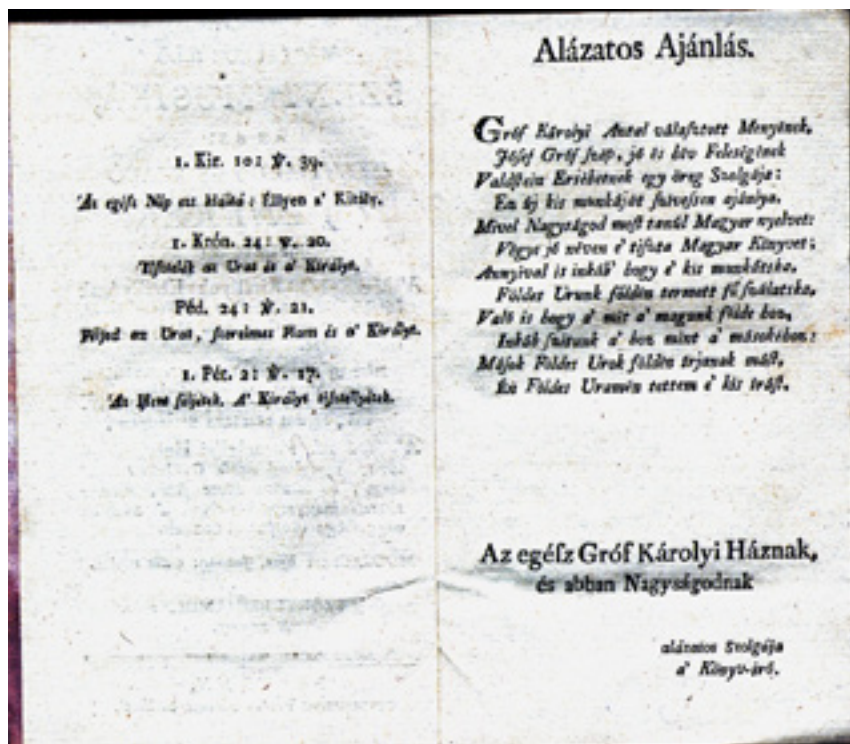 1. Kir. 10: ℣. 39.
'Az egéſz Nép ezt kiáltá: Éllyen a' Király.
1. Krón. 24: ℣. 20.
Tiſztelék az Urat és a' Királyt.
Péd. 24: ℣. 21.
Féljed az Urat, ſzerelmes Fiam és a' Királyt.
1. Pét. 2: ℣. 17.
'Az Iſtent féljétek. A' Királyt tiſztellyétek.
Alázatos Ajánlás.
Gróf Károlyi Antalválaſztott Menyének,
Jóſef Gróf ſzép, jó és hív Feleségének
Valdſtein Erſébetnek egy öreg Szolgája:
Én új kis munkáját ſzívesſen ajánlya.
Mivel Nagyságod moſt tanúl Magyar nyelvet:
Végye jó néven e' tiſzta Magyar Könyvet;
Annyival is inkáb' hogy e' kis munkátska,
Földes Urunk földén termett fű ſzálatska.
Való is hogy a' mit a' magunk földe hoz,
Inkáb ſzítunk a' hoz mint a' másokéhoz:
Máſok Földes Urok földén írjanak máſt,
Én Földes Uramén tettem e' kis íráſt.
Az egéſz Gróf Károlyi Háznak,
és abban Nagyságodnak
alázatos Szolgája
a' Könyv-író.